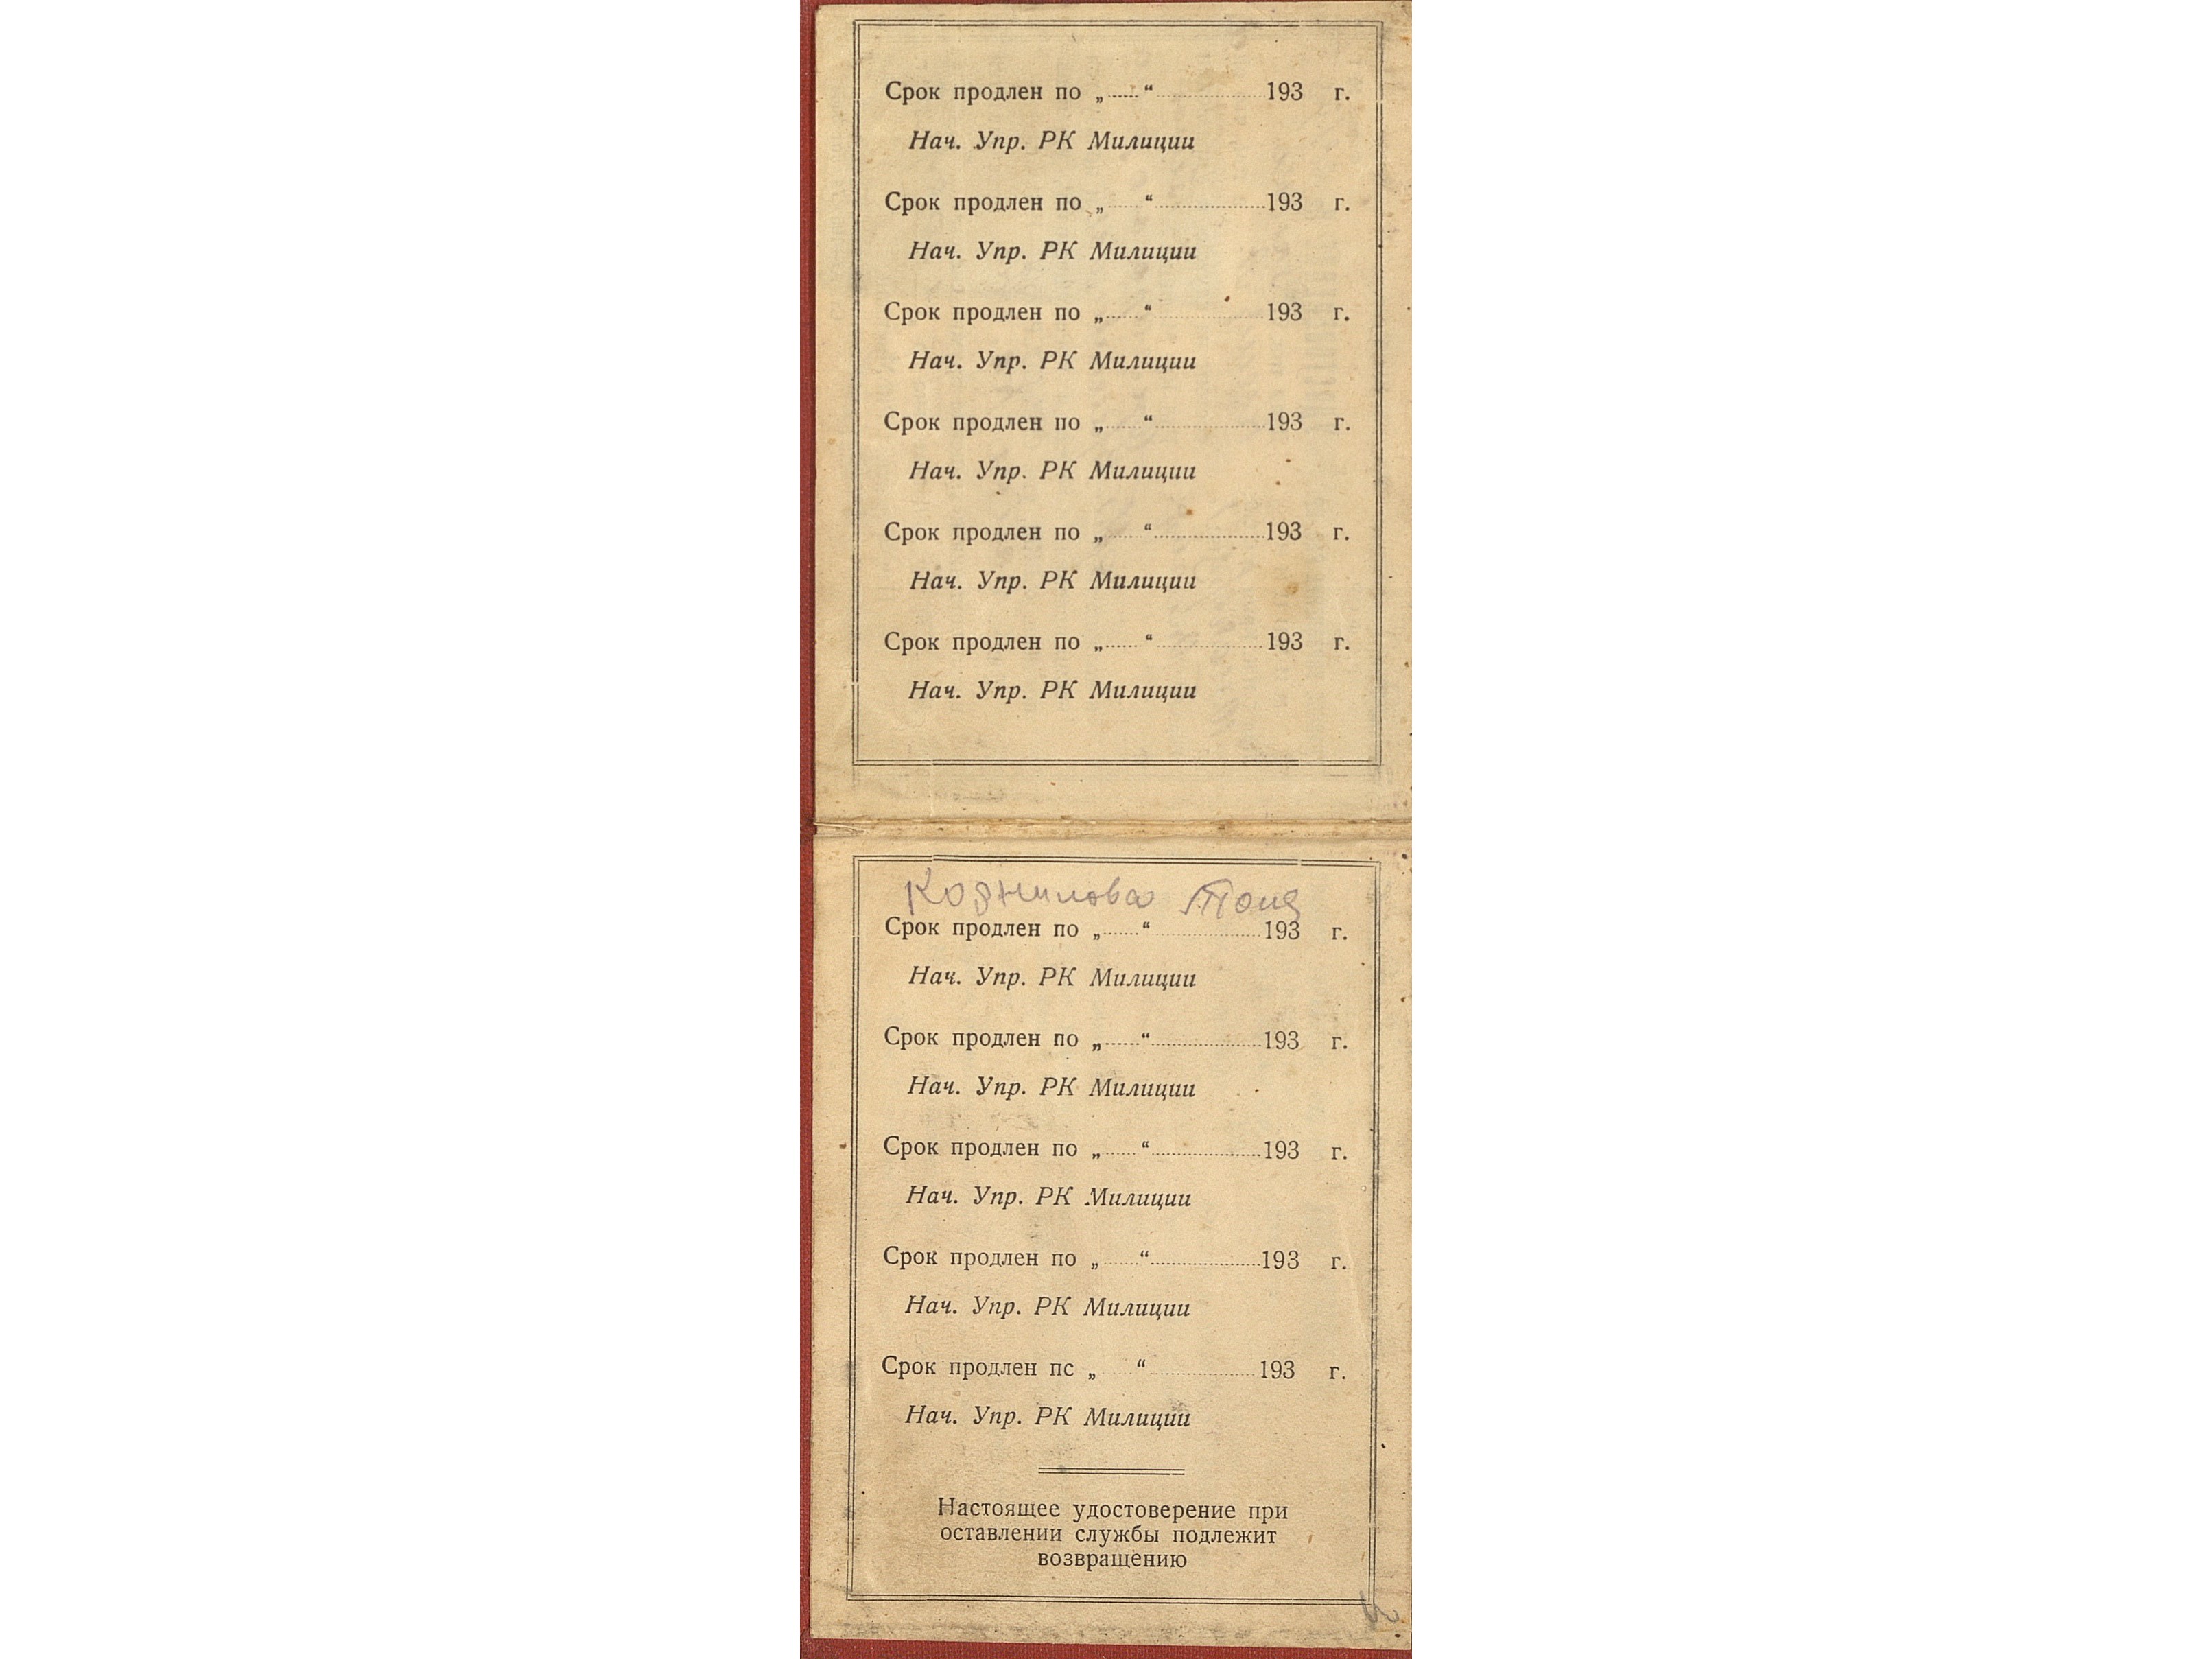 Срок продлен по „......“ ............ 193 г.
Нач. Упр. РК Милиции
Срок продлен по „......“ ............ 193 г.
Нач. Упр. РК Милиции
Срок продлен по „......“ ............ 193 г.
Нач. Упр. РК Милиции
Срок продлен по „......“ ............ 193 г.
Нач. Упр. РК Милиции
Срок продлен по „......“ ............ 193 г.
Нач. Упр. РК Милиции
Срок продлен по „......“ ............ 193 г.
Нач. Упр. РК Милиции
Корнилова Тоня
Срок продлен по „......“ ............ 193 г.
Нач. Упр. РК Милиции
Срок продлен по „......“ ............ 193 г.
Нач. Упр. РК Милиции
Срок продлен по „......“ ............ 193 г.
Нач. Упр. РК Милиции
Срок продлен по „......“ ............ 193 г.
Нач. Упр. РК Милиции
Срок продлен пс „ “ ............ 193 г.
Нач. Упр. РК Милиции
Настоящее удостоверение при
оставлении службы подлежит
возвращению